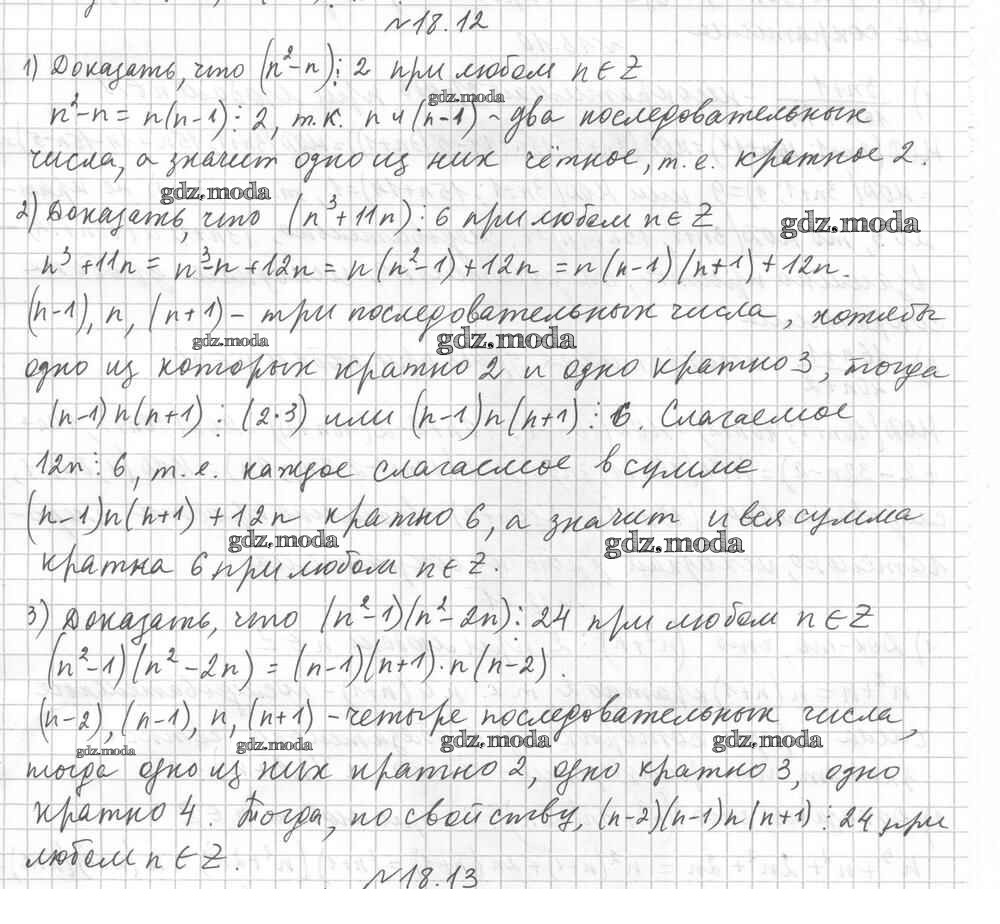 №18.12
1) Доказать, что (n²-n)⋮2 при любом n∈Z
n²-n = n(n-1)⋮2, т.к. n и (n-1) - два последовательных
gdz.moda
числа, а значит одно из них чётное, т.е. кратное 2.
gdz.moda
2) Доказать, что (n³+11n)⋮6 при любом n∈Z
gdz.moda
n³+11n = n³-n+12n = n(n²-1)+12n = n(n-1)(n+1)+12n.
(n-1), n, (n+1) - три последовательных числа, хотябы
gdz.moda gdz.moda
одно из которых кратно 2 и одно кратно 3, тогда
(n-1)n(n+1)⋮(2·3) или (n-1)n(n+1)⋮6. Слагаемое
12n⋮6, т.е. каждое слагаемое в сумме
(n-1)n(n+1)+12n кратно 6, а значит и вся сумма
gdz.moda gdz.moda
кратна 6 при любом n∈Z.
3) Доказать, что (n²-1)(n²-2n)⋮24 при любом n∈Z
(n²-1)(n²-2n) = (n-1)(n+1)·n(n-2).
(n-2), (n-1), n, (n+1) - четыре последовательных числа,
gdz.moda gdz.moda gdz.moda gdz.moda
тогда одно из них кратно 2, одно кратно 3, одно
кратно 4. Тогда, по свойству, (n-2)(n-1)n(n+1)⋮24 при
любом n∈Z.
№18.13